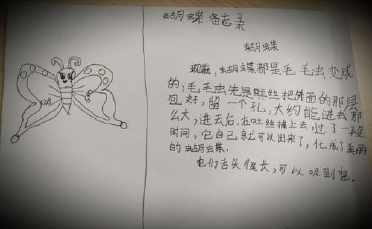 蝴蝶备忘录
蝴蝶
蝴蝶都是毛毛虫变成
的,毛毛虫先是吐丝把外面的那层
包好,留一个孔,大约能进去那
么大,进去后,在吐丝补上去,过了一段
时间,它自己就可以出来了,化成了美丽
的蝴蝶。
它们舌头很长,可以吸到蜜。